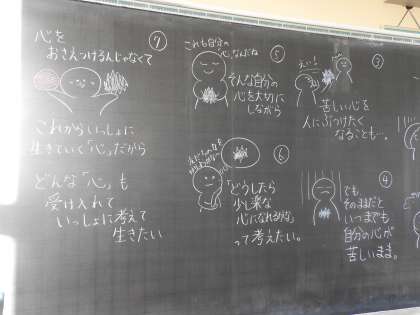 ③
えい!
苦しい心を
人にぶつけたく
なることも…。
④
でも、
そのままだと
いつまでも
自分の心が
苦しいまま。
⑤
これも自分の
「心」なんだね
そんな自分の
心を大切に
しながら
⑥
「どうしたら
少し楽な
心になれるかな」
って考えたい。
⑦
心を
おさえつけるんじゃなくて
これからいっしょに
生きていく「心」だから
どんな「心」も
受け入れて
いっしょに考えて
生きたい